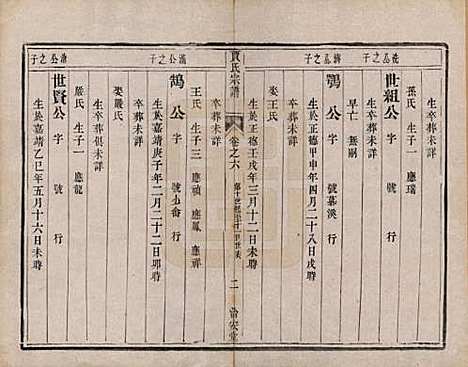 洗公之子
世組公 字 號 行
生卒葬未詳
孫氏 生子一 應瑞
濤公之子
鶚公 字 號慕溪 行
生於正德甲申年四月二十八日戌時
卒葬未詳
早亡 無嗣
娶王氏
生於正德壬戌年三月十二日未時
賈氏宗譜
卷之六
二
滿公之子
鵠公 字 號 行
生於嘉靖庚子年二月二十二日卯時
卒葬未詳
王氏 生子三 應禎 應鳳 應祥
娶嚴氏
卒葬俱未詳
嚴氏 生子一 應龍
滄公之子
世賢公 字 號 行
生於嘉靖乙巳年五月十六日未時